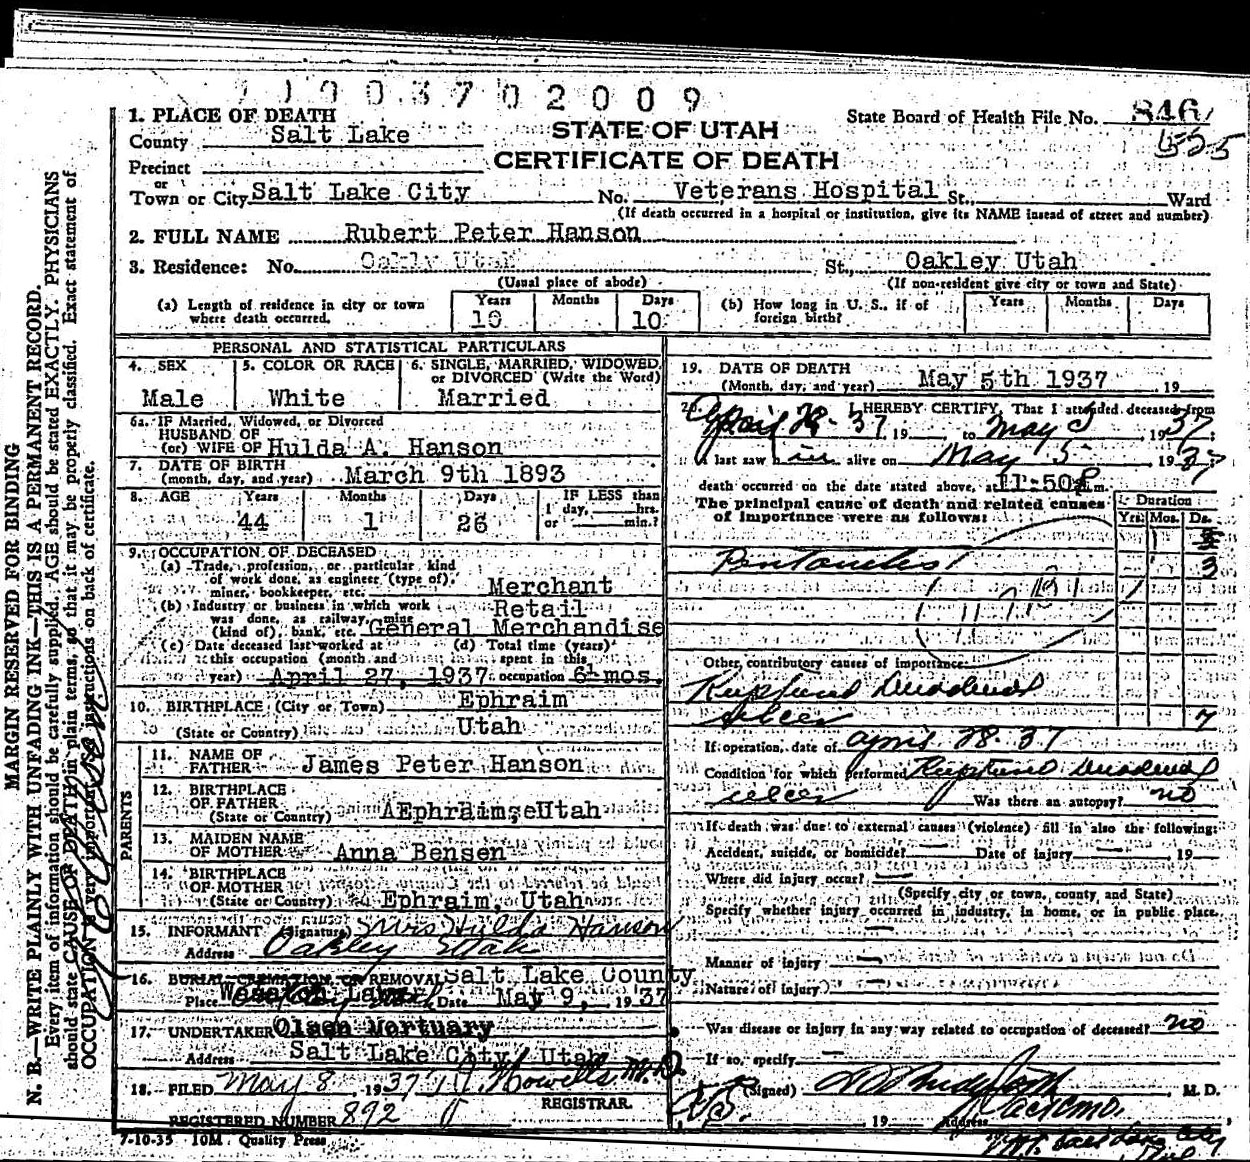 1003702009
1. PLACE OF DEATH
County Salt Lake
STATE OF UTAH
CERTIFICATE OF DEATH
State Board of Health File No. 846
555
Precinct
or
Town or City Salt Lake City No. Veterans Hospital St., Ward
(If death occurred in a hospital or institution, give its NAME insead of street and number)
2. FULL NAME Rubert Peter Hanson
3. Residence: No. Oakly Utah St., Oakley Utah
(Usual place of abode) (If non-resident give city or town and State)
(a) Length of residence in city or town where death occurred. Years 10 Months Days 10
(b) How long in U. S., if of foreign birth? Years Months Days
PERSONAL AND STATISTICAL PARTICULARS
4. SEX Male
5. COLOR OR RACE White
6. SINGLE, MARRIED, WIDOWED, or DIVORCED (Write the Word) Married
6a. IF Married, Widowed, or Divorced
HUSBAND OF
(or) WIFE OF Hulda A. Hanson
7. DATE OF BIRTH
(month, day, and year) March 9th 1893
8. AGE Years 44 Months 1 Days 26 IF LESS than 1 day, hrs. or min.?
9. OCCUPATION OF DECEASED
(a) Trade, profession, or particular kind
of work done, as engineer (type of),
miner, bookkeeper, etc. Merchant
(b) Industry or business in which work
was done, as railway, mine
(kind of), bank, etc. Retail General Merchandise
(c) Date deceased last worked at
this occupation (month and
year) April 27, 1937
(d) Total time (years)
spent in this
occupation 6½ mos.
10. BIRTHPLACE (City or Town) Ephraim
(State or Country) Utah
PARENTS
11. NAME OF FATHER James Peter Hanson
12. BIRTHPLACE OF FATHER
(State or Country) Ephraim, Utah
13. MAIDEN NAME OF MOTHER Anna Bensen
14. BIRTHPLACE OF MOTHER
(State or Country) Ephraim, Utah
15. INFORMANT (Signature) Mrs Hulda Hanson
Address Oakley Utah
16. BURIAL, CREMATION, OR REMOVAL Salt Lake County
Place Wasatch Lawn Date May 9, 1937
17. UNDERTAKER Olsen Mortuary
Address Salt Lake City, Utah
18. FILED May 8, 1937 Howells M.D.
REGISTRAR
REGISTERED NUMBER 892
7-10-35 10M Quality Press
19. DATE OF DEATH
(Month, day, and year) May 5th 1937, 19
20. I HEREBY CERTIFY, That I attended deceased from
April 28-37, 19 to May 5, 1937;
I last saw him alive on May 5, 1937;
death occurred on the date stated above, at 11:50 P m.
The principal cause of death and related causes
of importance were as follows:
Duration
Yrs. Mos. Ds.
Peritonitis 3
Other contributory causes of importance:
Ruptured duodenal
ulcer 7
If operation, date of April 28-37
Condition for which performed Ruptured duodenal
ulcer Was there an autopsy? no
If death was due to external causes (violence) fill in also the following:
Accident, suicide, or homicide? Date of injury 19
Where did injury occur?
(Specify city or town, county, and State)
Specify whether injury occurred in industry, in home, or in public place.
Manner of injury
Nature of injury
Was disease or injury in any way related to occupation of deceased? no
If so, specify
(Signed) M. D.
19 Address
MARGIN RESERVED FOR BINDING
N. B.—WRITE PLAINLY WITH UNFADING INK—THIS IS A PERMANENT RECORD.
Every item of information should be carefully supplied. AGE should be stated EXACTLY. PHYSICIANS
should state CAUSE OF DEATH in plain terms, so that it may be properly classified. Exact statement of
OCCUPATION is very important. See instructions on back of certificate.